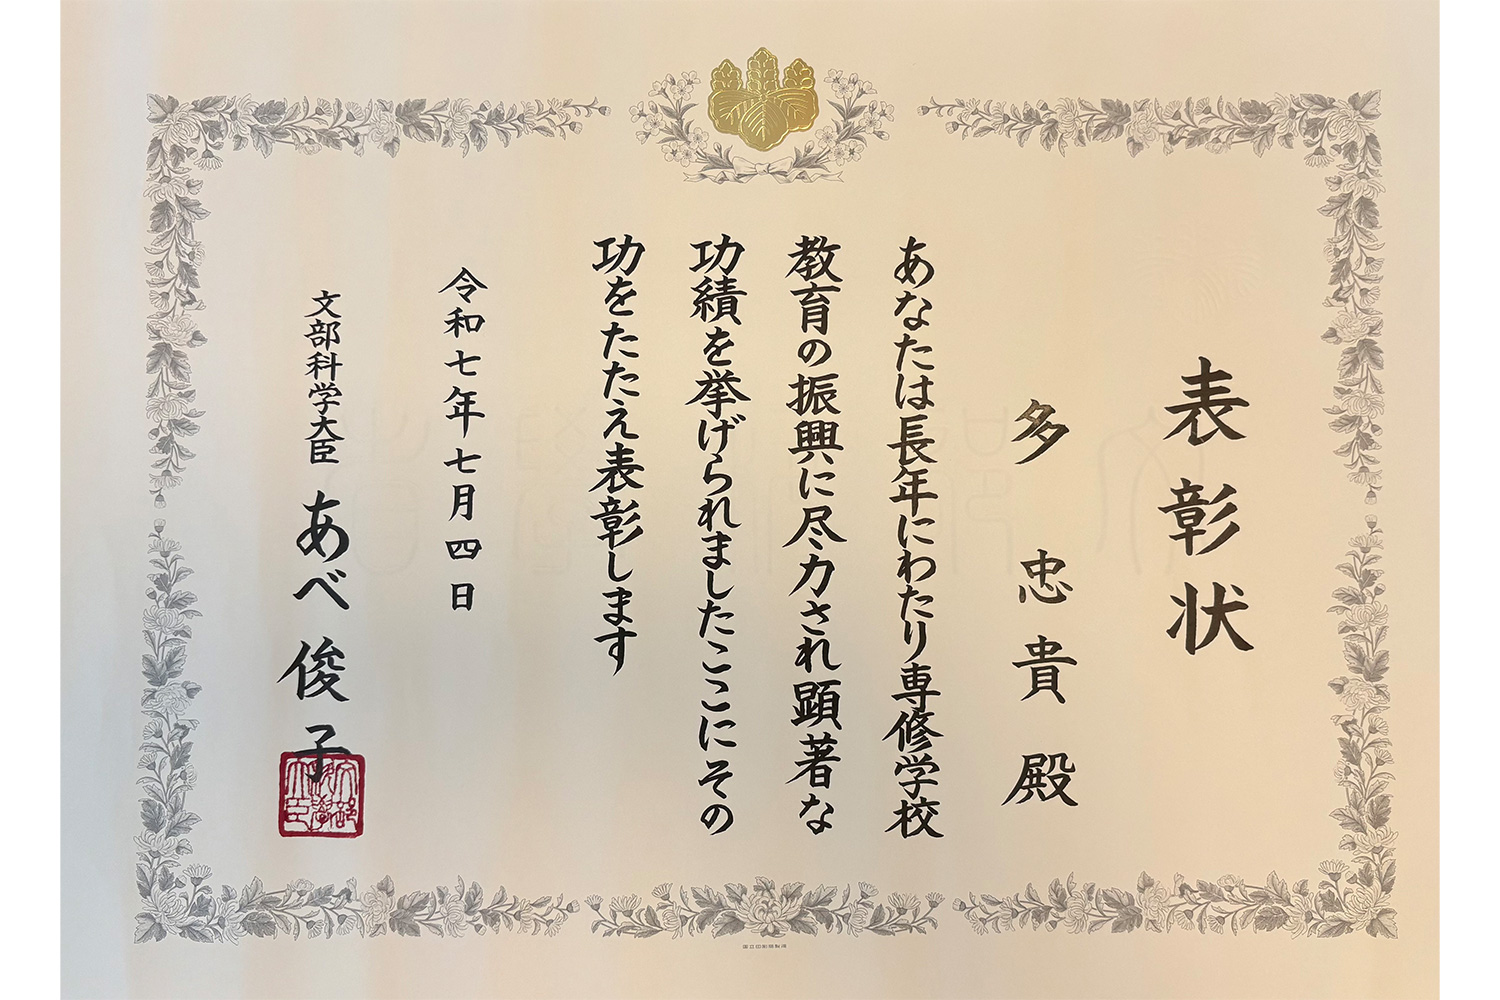 表彰状
多 忠貴 殿
あなたは長年にわたり専修学校
教育の振興に尽力され顕著な
功績を挙げられましたここにその
功をたたえ表彰します
令和七年七月四日
文部科学大臣 あべ俊子
文部科学大臣